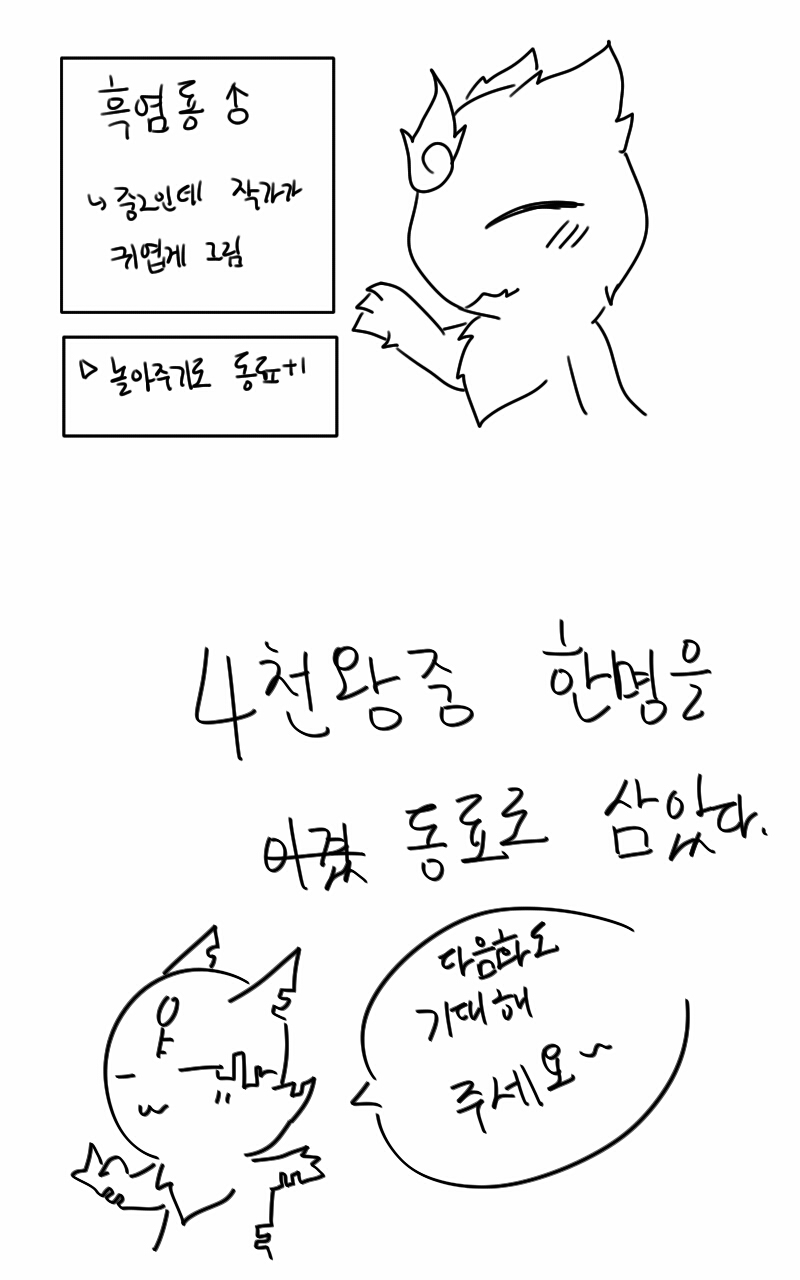 흑염룡 ♂
↳ 중2인데 작가가
귀엽게 그림
▷ 놀아주기로 동료+1
4천왕중 한명을
이겼 동료로 삼았다.
양
다음화도
기대해
주세요~